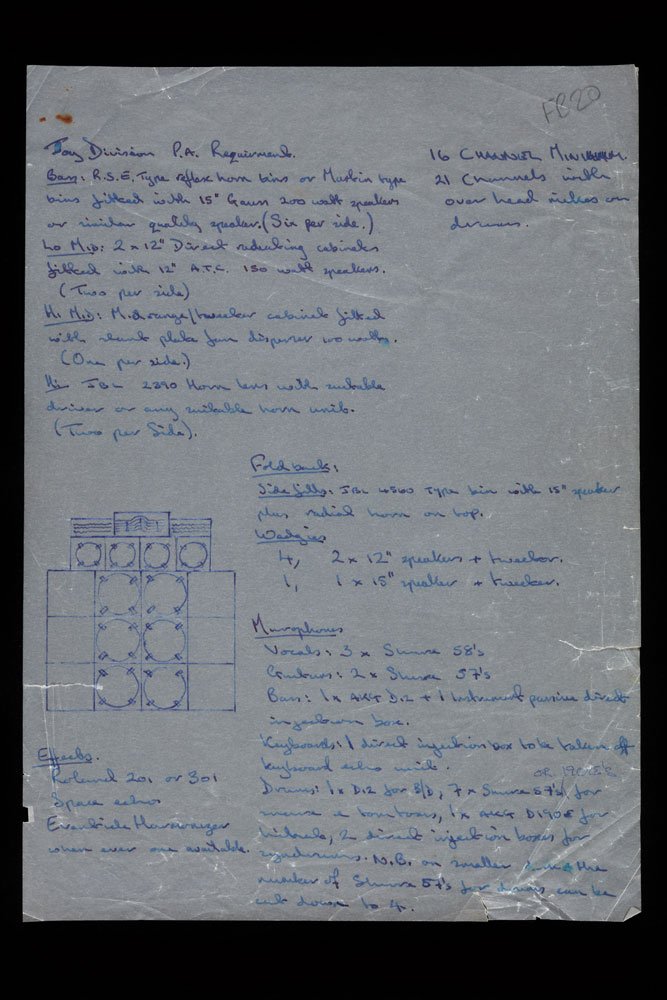 FB20
Joy Division P.A. Requirments.
Bass: R.S.E. Type reflex horn bins or Martin type
bins fitted with 15" Gauss 200 watt speakers
or similar quality speaker. (Six per side.)
Lo Mid: 2 x 12" Direct radiating cabinets
fitted with 12" A.T.C. 150 watt speakers.
(Two per side)
Hi Mid: Midrange/tweeter cabinet fitted
with slant plate fan disperser 100 watts.
(One per side.)
Hi JBL 2390 Horn lens with suitable
driver or any suitable horn unit.
(Two per Side).
16 CHANNEL MINIMUM.
21 Channels with
over head mikes on
drums.
Fold back:
Side fills: JBL 4560 Type bin with 15" speaker
plus radial horn on top.
Wedgies
4, 2 x 12" speakers + tweeter.
1, 1 x 15" speaker + tweeker.
Microphones
Vocals: 3 x Shure 58's
Guitars: 2 x Shure 57's
Bass: 1 x AKG D.12 + 1 Instrument passive direct
injection box.
Keyboards: 1 direct injection box to be taken off
keyboard echo unit.
Drums: 1 x D12 for B/D, 7 x Shure 57's for
snare & tom toms, 1 x AKG D190E for
hihats, 2 direct injection boxes for
syndrums. N.B. on smaller the
number of Shure 57's for drums can be
cut down to 4.
Effects.
Roland 201 or 301
Space echo
Eventide Harmonizer
when ever one available.